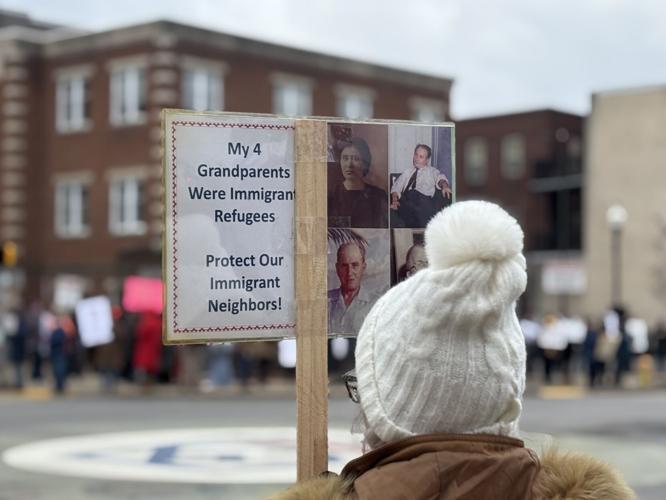 My 4
Grandparents
Were Immigrant
Refugees
Protect Our
Immigrant
Neighbors!